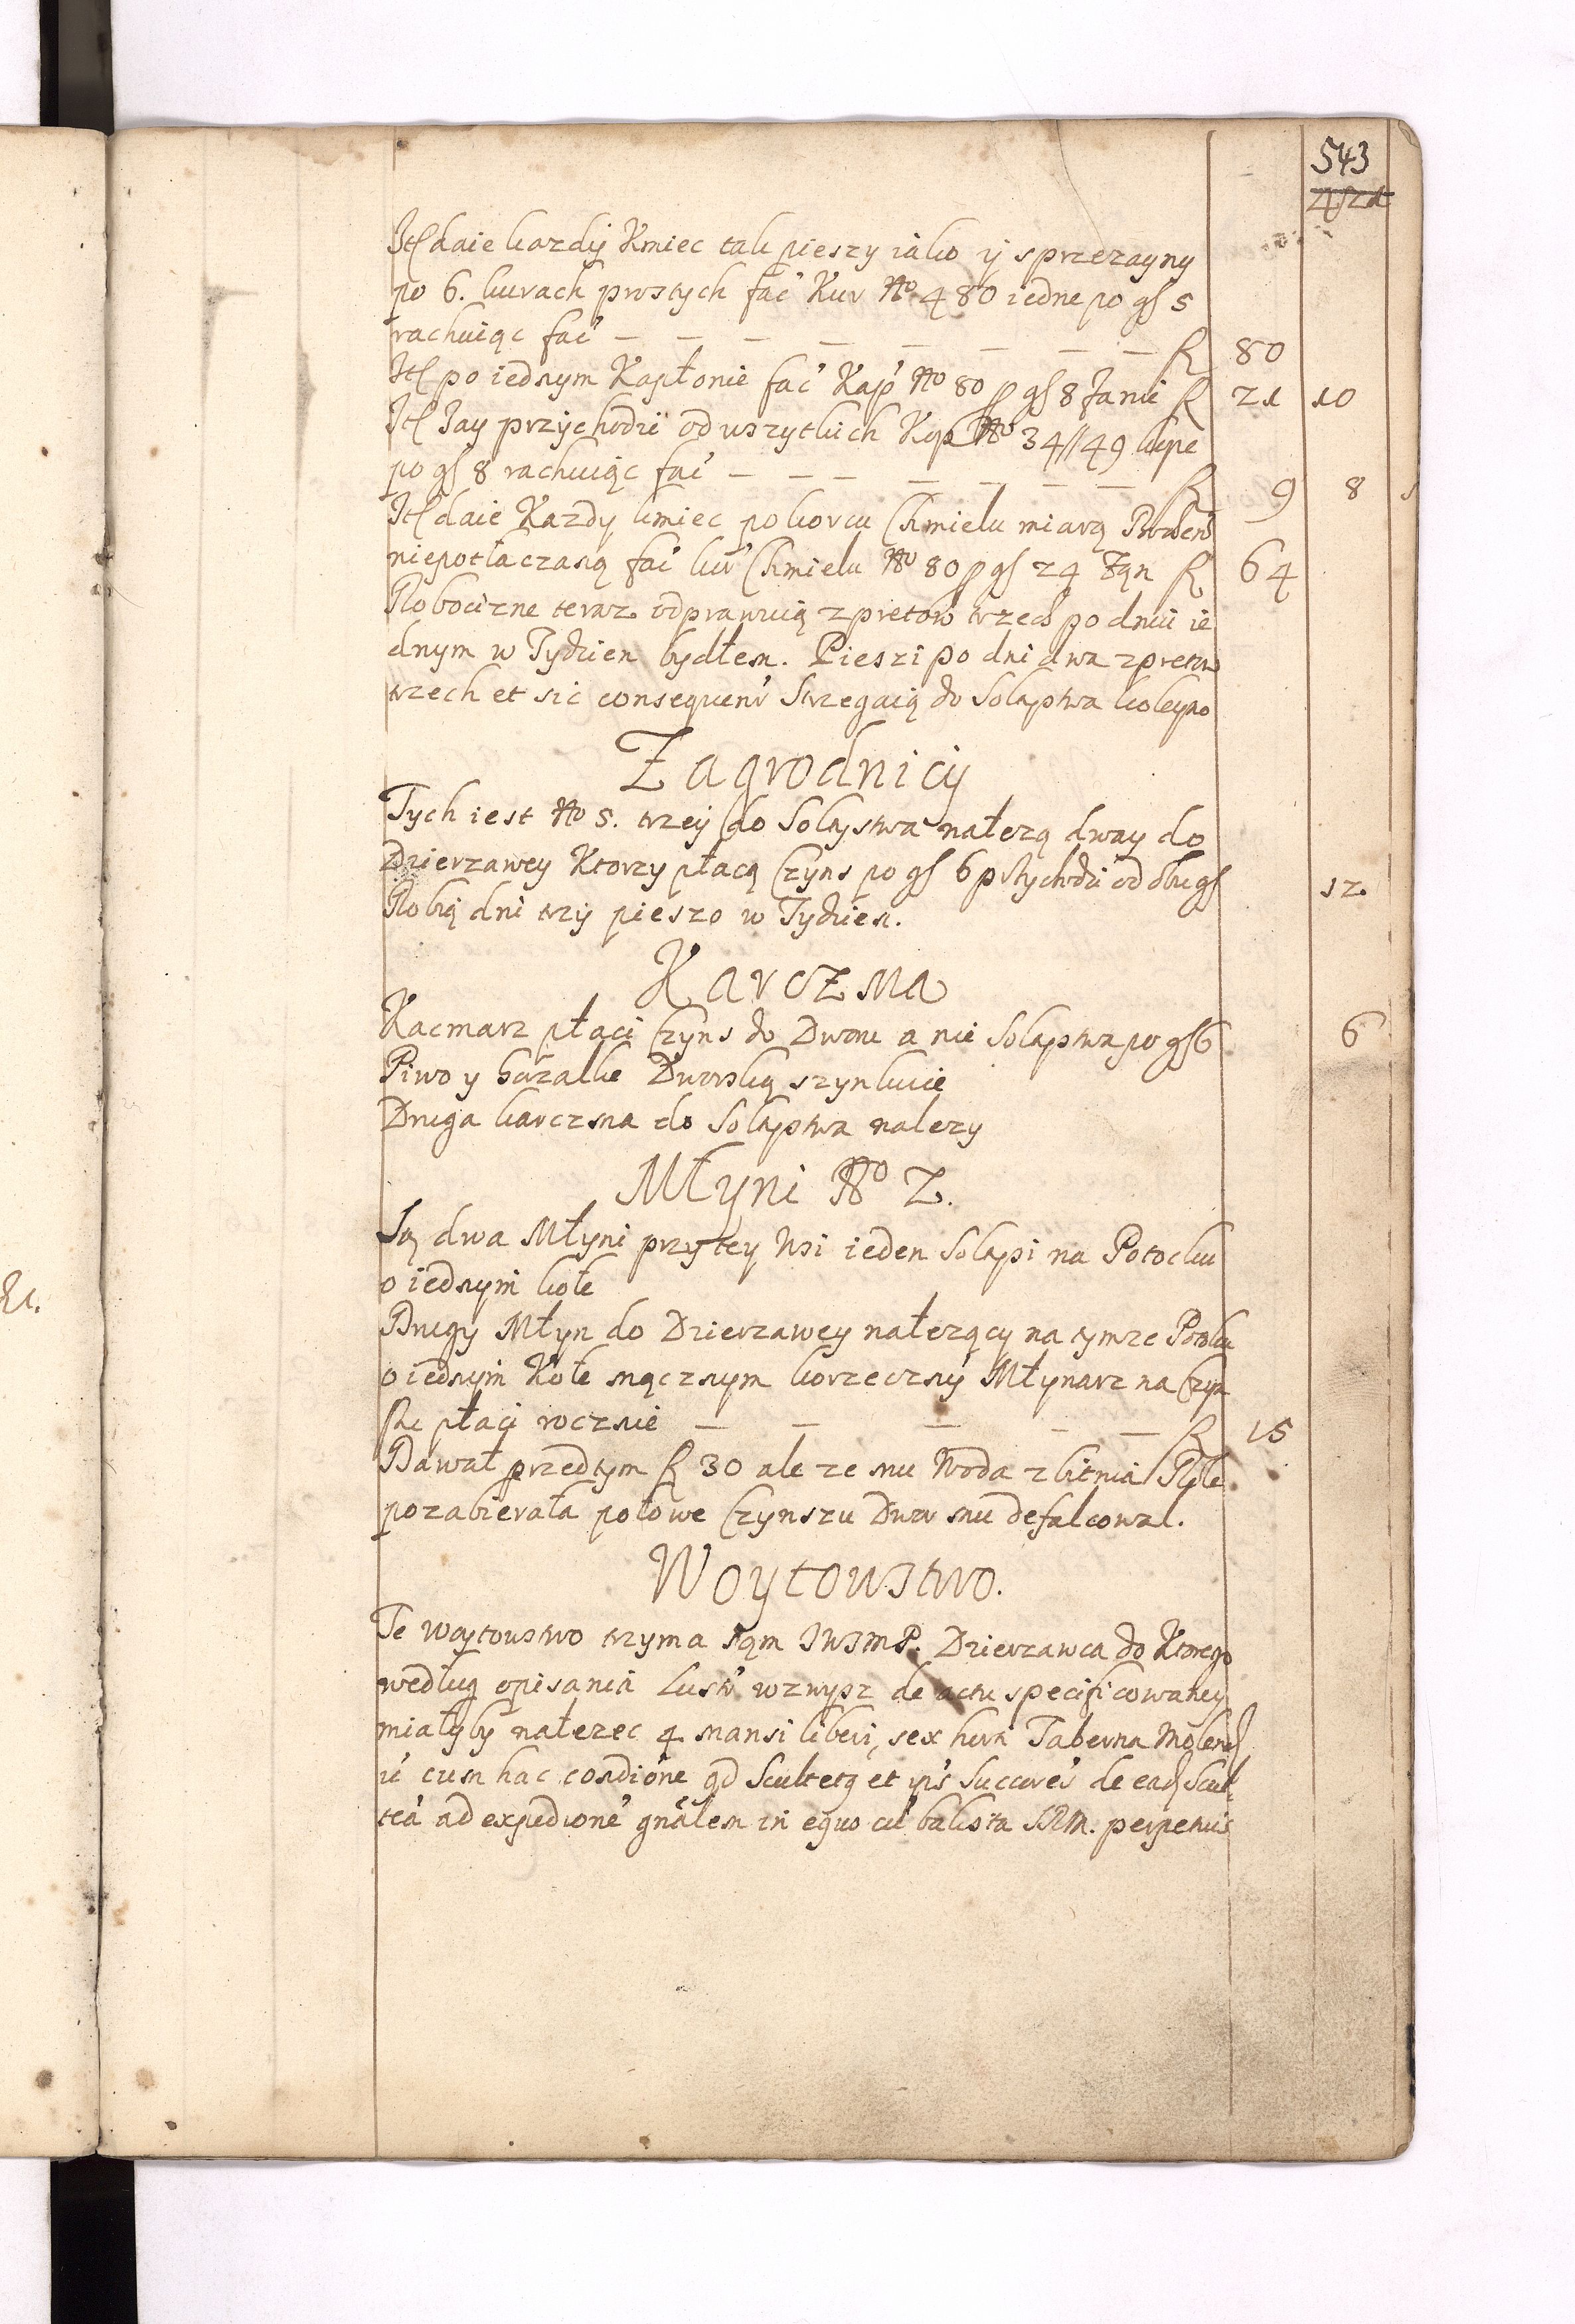 543
Itē daie kazdy Kmiec tak pieszy iako y sprzezayny
po 6. kurach prostych fać Kur No 480 iedne po gſ 5
rachuiąc fać — — — — — — — — R 80
Itē po iednym Kapłonie fać Kap No 80 p gſ 8 Janie R 21 10
Itē Jay przychodzi od wszytkich Kop No 34//49 kope
po gſ 8 rachuiąc fać — — — — — — — R 9 8
Itē daie Kazdy kmiec po korcu Chmielu miarą
niepotłaczaną fać kor Chmielu No 80 p gſ 24 R 64
Robocizne teraz odprawuią z pretow trzech po dniu ie
dnym w Tydzien bydłem. Pieszi po dni dwa z pretow
trzech et sic consequenr Strzegaią do Soltystwa koleyno
Zagrodnicy
Tych iest No 5. trzey do Soltystwa nałezą dway do
Dzierzawey Ktorzy płacą Czyns po gſ 6 przychodzi od obu gſ 12.
Robią dni trzy pieszo w Tydzien.
Karczma
Kacmarz płaci Czyns do Dworu a nie Soltystwa po gſ 6 6
Piwo y horzalke Dworską szynkuie
Druga karczma do Soltystwa nalezy
Młyni No 2.
Są dwa Młyni przy tey Wsi ieden Soltysi na Potocku
o iednym kole
Drugy Młyn do Dzierzawey nałezący na tymze Potoku
o iednym Kole mącznym korzeczny Młynarz na Czyn
sze płaci rocznie — — — — — R 15
Dawał przedtym R 30 ale ze mu Woda zbitnia Role
pozabierała połowe Czynszu Dwor mu defalcowal.
Woytowstwo.
Te Woytowstwo trzyma sąm JWJMP. Dzierzawca do Ktorego
według opisania Lustr wzwysz de actu specificowaney
miałyby nałezec 4 mansi liberi, sex horti Taberna Molend
ú cum hac condióne qd Scultetg et ipś Succoreś de ead Scul,
teá ad expedioné gnálem in equo cú balista SRM. perpetuis